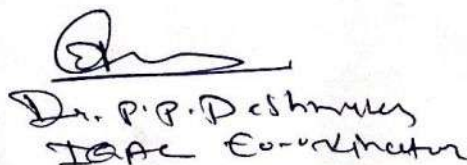 Dr. P.P. Deshmukh
IQAC Co-ordinator